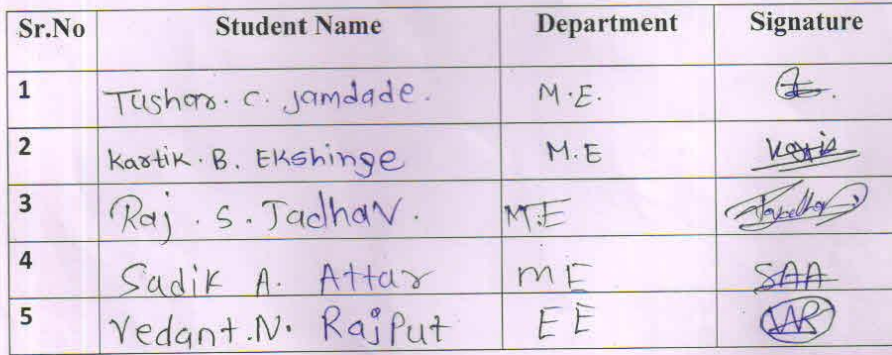 Sr.No Student Name Department Signature
1 Tushar. C. Jamdade. M.E.
2 Kartik. B. Ekshinge M.E
3 Raj. S. Jadhav. M.E
4 Sadik A. Attar ME SAA
5 Vedant.N. Rajput EE